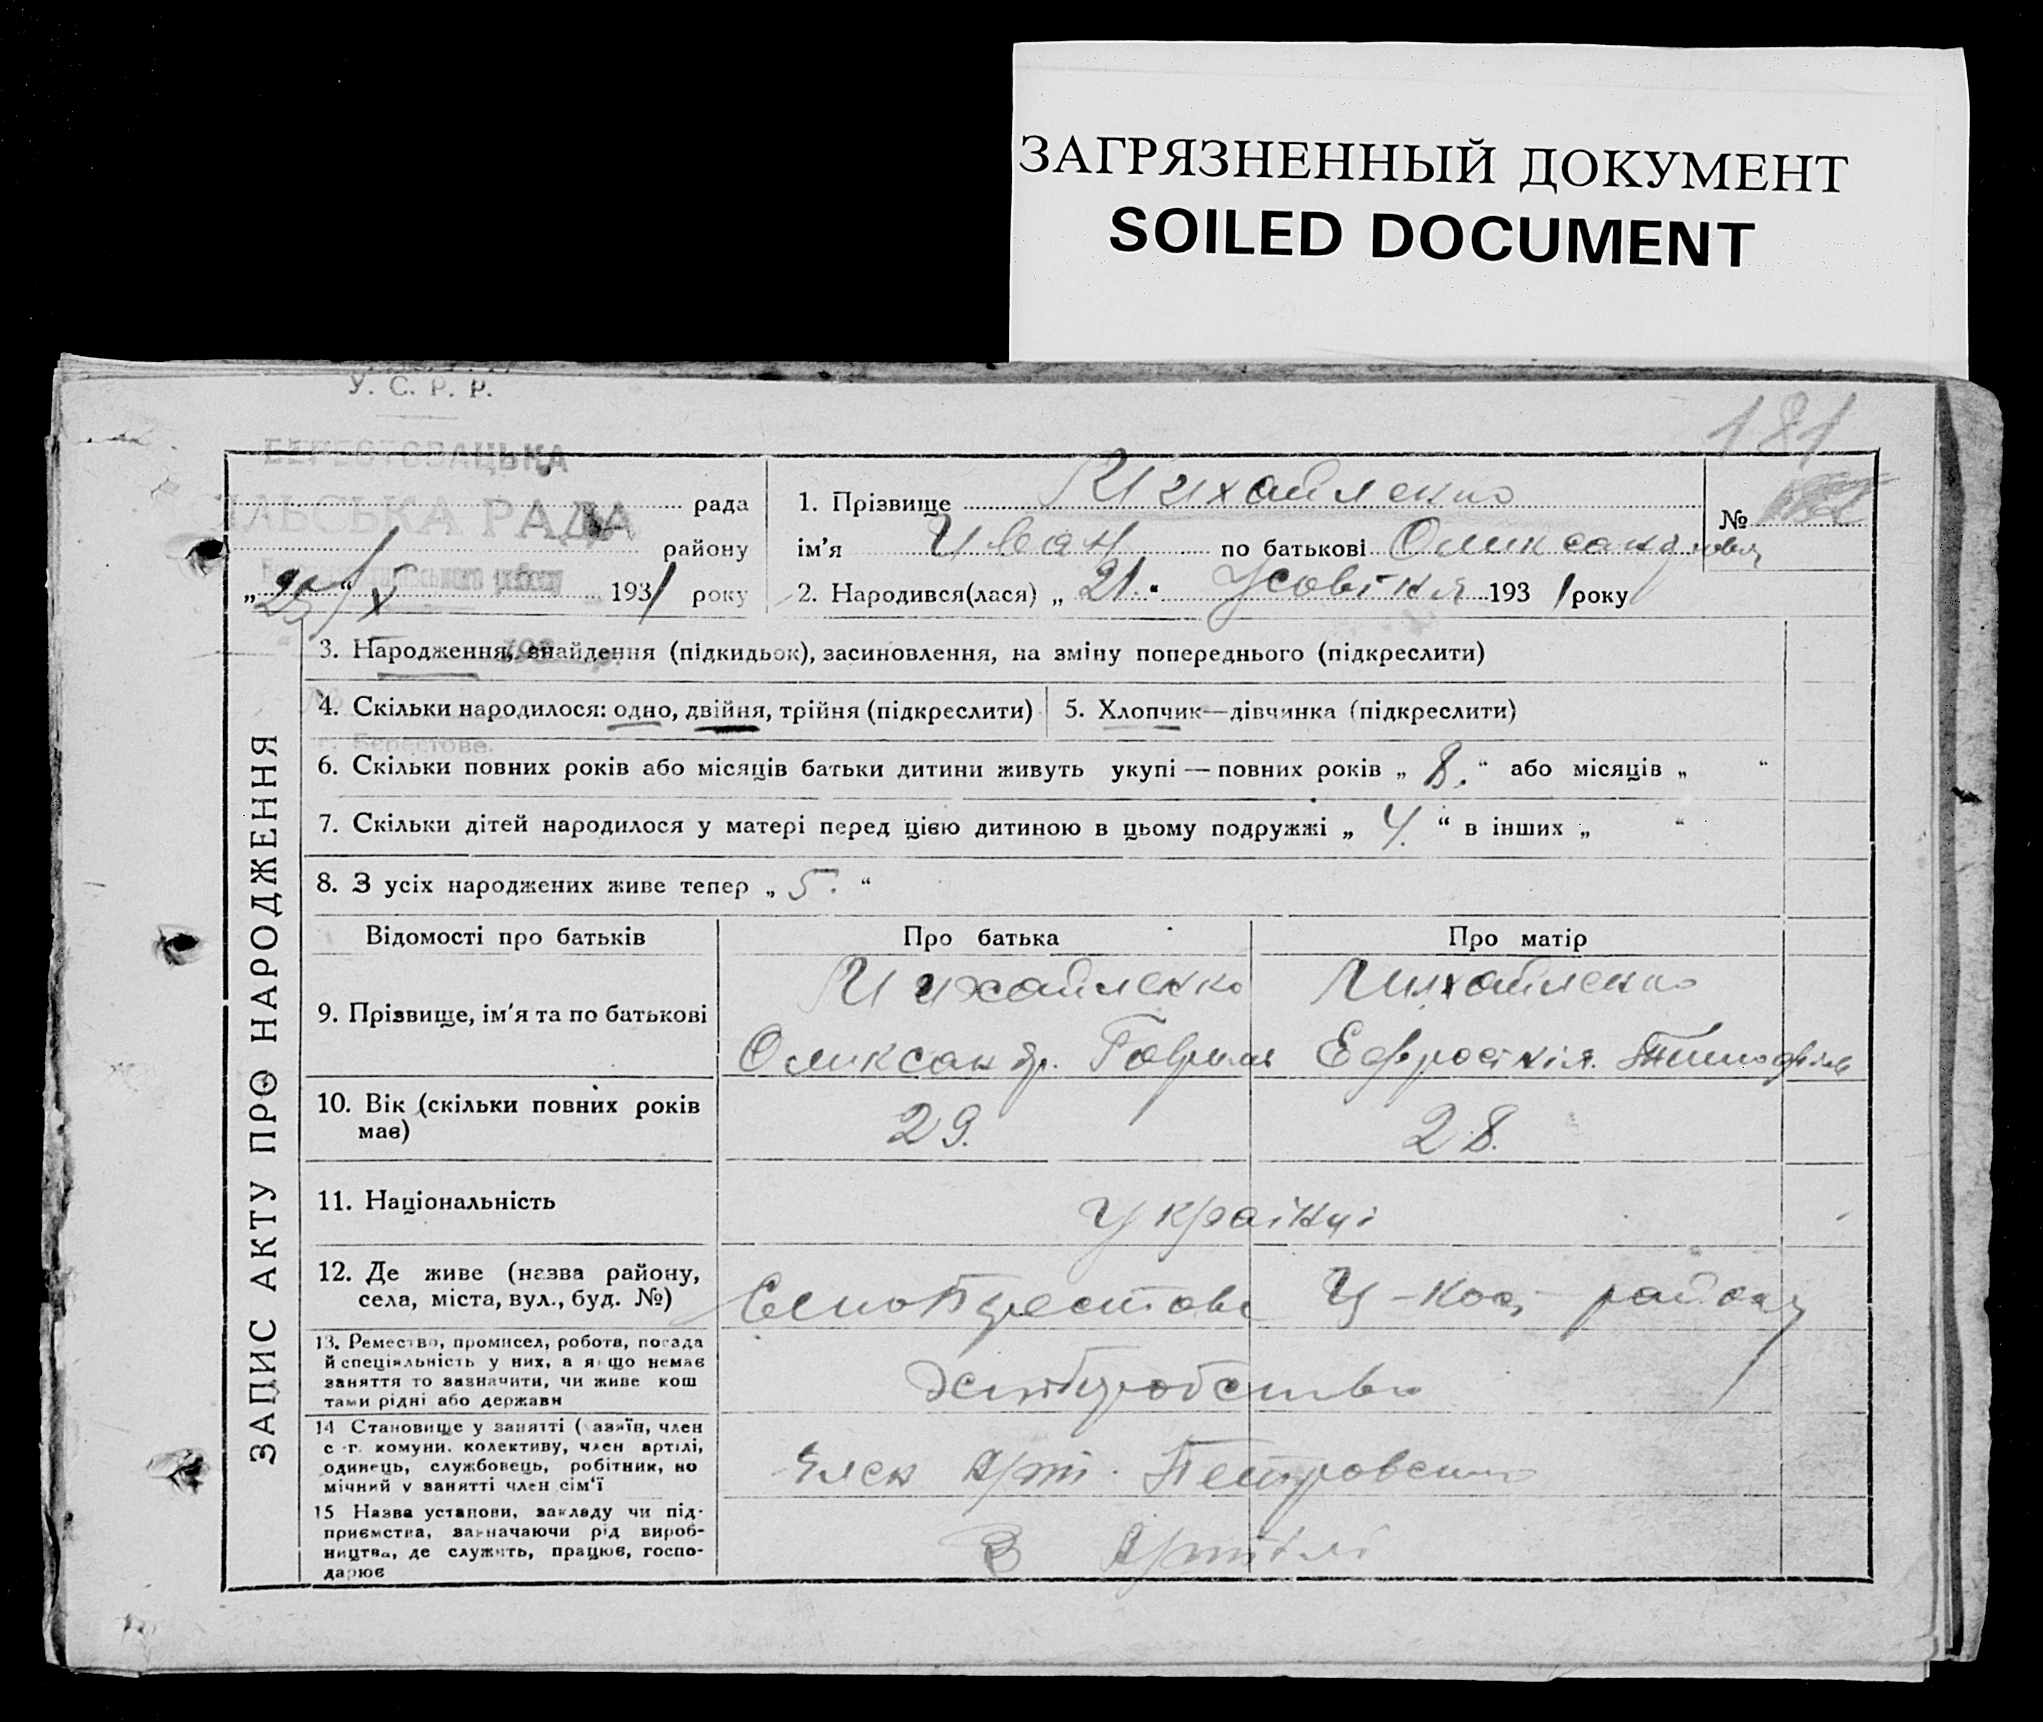 ЗАГРЯЗНЕННЫЙ ДОКУМЕНТ
SOILED DOCUMENT
У. С. Р. Р.
181
БЕРЕСТОВАЦЬКА
СІЛЬСЬКА РАДА
рада
району
„25/X 1931 року
1. Прізвище Михайленко
№
ім'я Иван по батькові Олександрович
2. Народився(лася) „21." 1931 року
ЗАПИС АКТУ ПРО НАРОДЖЕННЯ
3. Народження, знайдення (підкидьок), засиновлення, на зміну попереднього (підкреслити)
4. Скільки народилося: одно, двійня, трійня (підкреслити) 5. Хлопчик—дівчинка (підкреслити)
с. Берестове.
6. Скільки повних років або місяців батьки дитини живуть укупі — повних років „8." або місяців „ "
7. Скільки дітей народилося у матері перед цією дитиною в цьому подружжі „4." в інших „ "
8. З усіх народжених живе тепер „5."
Відомості про батьків Про батька Про матір
9. Прізвище, ім'я та по батькові
Михайленко Михайленко
Олександр. Гаврил
10. Вік (скільки повних років має)
29. 28.
11. Національність
Українці
12. Де живе (назва району, села, міста, вул., буд. №)
району
13. Ремество, промисел, робота, посада
й спеціяльність у них, а якщо немає
заняття то зазначити, чи живе кош
тами рідні або держави
Хліборобство
14 Становище у занятті (хазяїн, член
с.-г. комуни. колективу, член артілі,
одинець, службовець, робітник, по
мічний у занятті член сім'ї
Член Арт. Петровського
15 Назва установи, закладу чи під-
приємства, зазначаючи рід вироб-
ництва, де служить, працює, госпо-
дарює
В Артілі